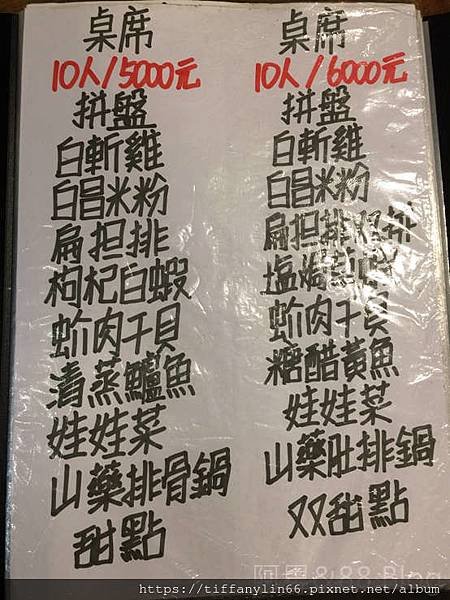 桌席
10人/5000元
拼盤
白斬雞
白昌米粉
扁担排
枸杞白蝦
蚧肉干貝
清蒸鱸魚
娃娃菜
山藥排骨鍋
甜點
桌席
10人/6000元
拼盤
白斬雞
白昌米粉
扁担排
塩焗
蚧肉干貝
糖醋黃魚
娃娃菜
山藥肚排鍋
双甜點
https://tiffanylin66.pixnet.net/album